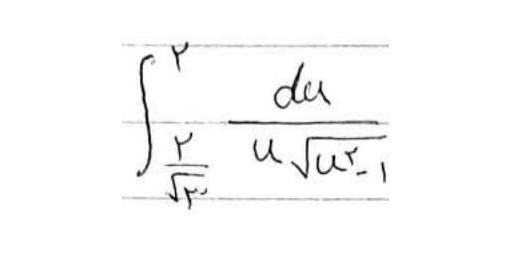 ∫_{۲/√۳}^{۲} du / (u√(u^۲-۱))